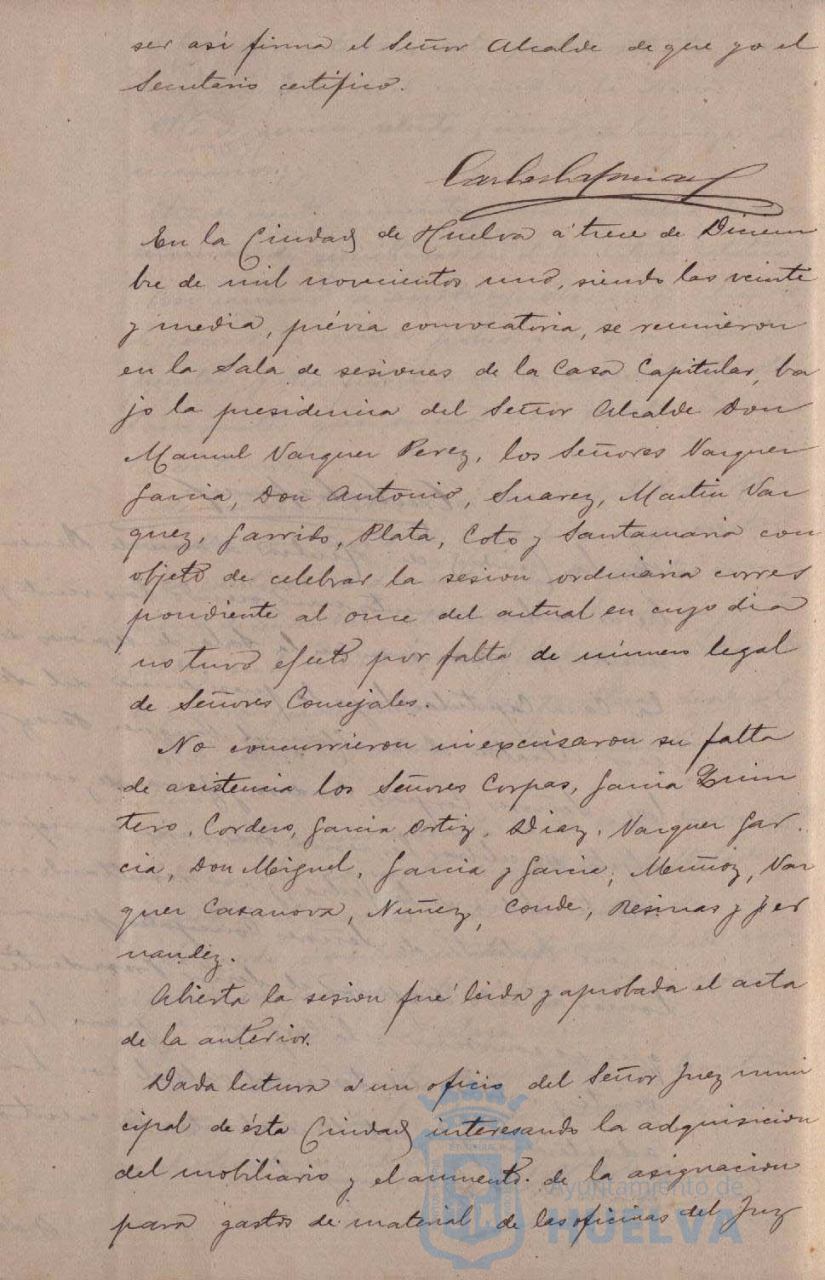 ser así firma el Señor Alcalde de que yo el
Secretario certifico.
En la Ciudad de Huelva á trece de Diciem
bre de mil novecientos uno, siendo las veinte
y media, prévia convocatoria, se reunieron
en la Sala de sesiones de la Casa Capitular, ba
jo la presidencia del Señor Alcalde Don
Manuel Vazquez Perez, los Señores Vazquez
Garcia, Don Antonio, Suarez, Martin Vaz
quez, Garrido, Plata, Coto y Santamaria con
objeto de celebrar la sesion ordinaria corres
pondiente al once del actual en cuyo dia
no tuvo efecto por falta de número legal
de Señores Concejales.
No concurrieron ni excusaron su falta
de asistencia los Señores Corpas, Garcia Quin
tero, Cordero, Garcia Ortiz, Diaz, Vazquez Gar
cia, Don Miguel, Garcia y Garcia, Muñoz, Vaz
quez Casanova, Nuñez, Conde, Resinas y Fer
nandez.
Abierta la sesion fué leida y aprobada el acta
de la anterior.
Dada lectura á un oficio del Señor Juez muni
cipal de ésta Ciudad interesando la adquisicion
del mobiliario y el aumento de la asignacion
para gastos de material de las oficinas del Juz
Ayuntamiento de
HUELVA